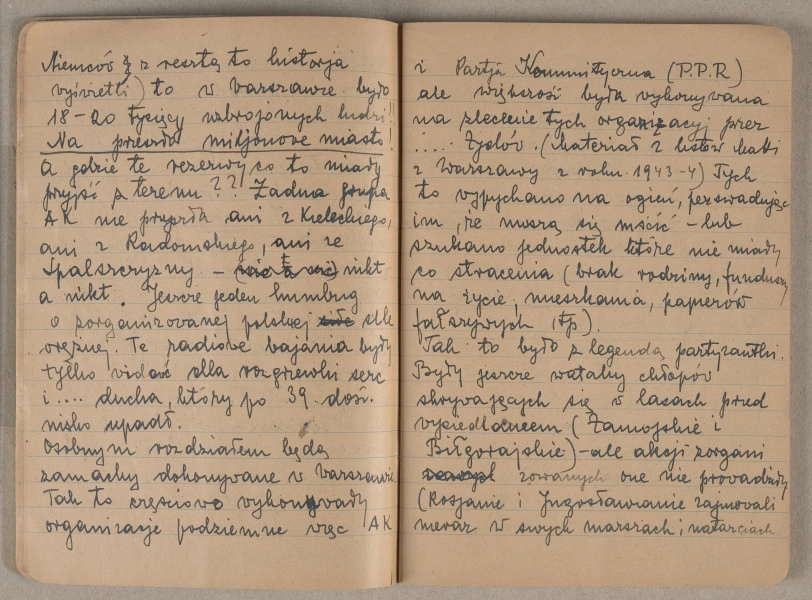 Niemców z resztą to historja
wyświetli) to w Warszawie było
18-20 tysięcy uzbrojonych ludzi!!
Na prawdę miljonowe miasto!
a gdzie te rezerwy co to miały
przyjść z terenu?? Żadna grupa
AK nie przyszła ani z Kieleckiego,
ani z Radomskiego, ani ze
Spalszczyzny – nikt
a nikt. Jeszcze jeden humbug
o zorganizowanej polskiej sile
orężnej. Te radiowe bajania były
tylko widać dla rozgrzewki serc
i .... ducha, który po 39. dość
nisko upadł.
Osobnym rozdziałem będą
zamachy dokonywane w Warszawie
Tak to częściowo wykonywały
organizacje podziemne więc AK
i Partja Kommunityczna (P.P.R)
ale większość była wykonywana
na zlecenie tych organizacyj przez
..... Żydów. (Materiał z listów Matki
z Warszawy z roku 1943-4) Tych
to wypychano na ogień, perswadując
im, że muszą się mścić – lub
szukano jednostek które nie miały
co stracenia (brak rodziny, funduszy
na życie, mieszkania, papierów
fałszywych itp).
Tak to było z legendą partyzantki.
Były jeszcze watahy chłopów
skrywających się w lasach przed
wysiedleńcem (Zamojskie i
Biłgorajskie) – ale akcji zorgani
zowanych one nie prowadziły
(Rosjanie i Jugosławianie zajmowali
nieraz w swych marszach i natarciach